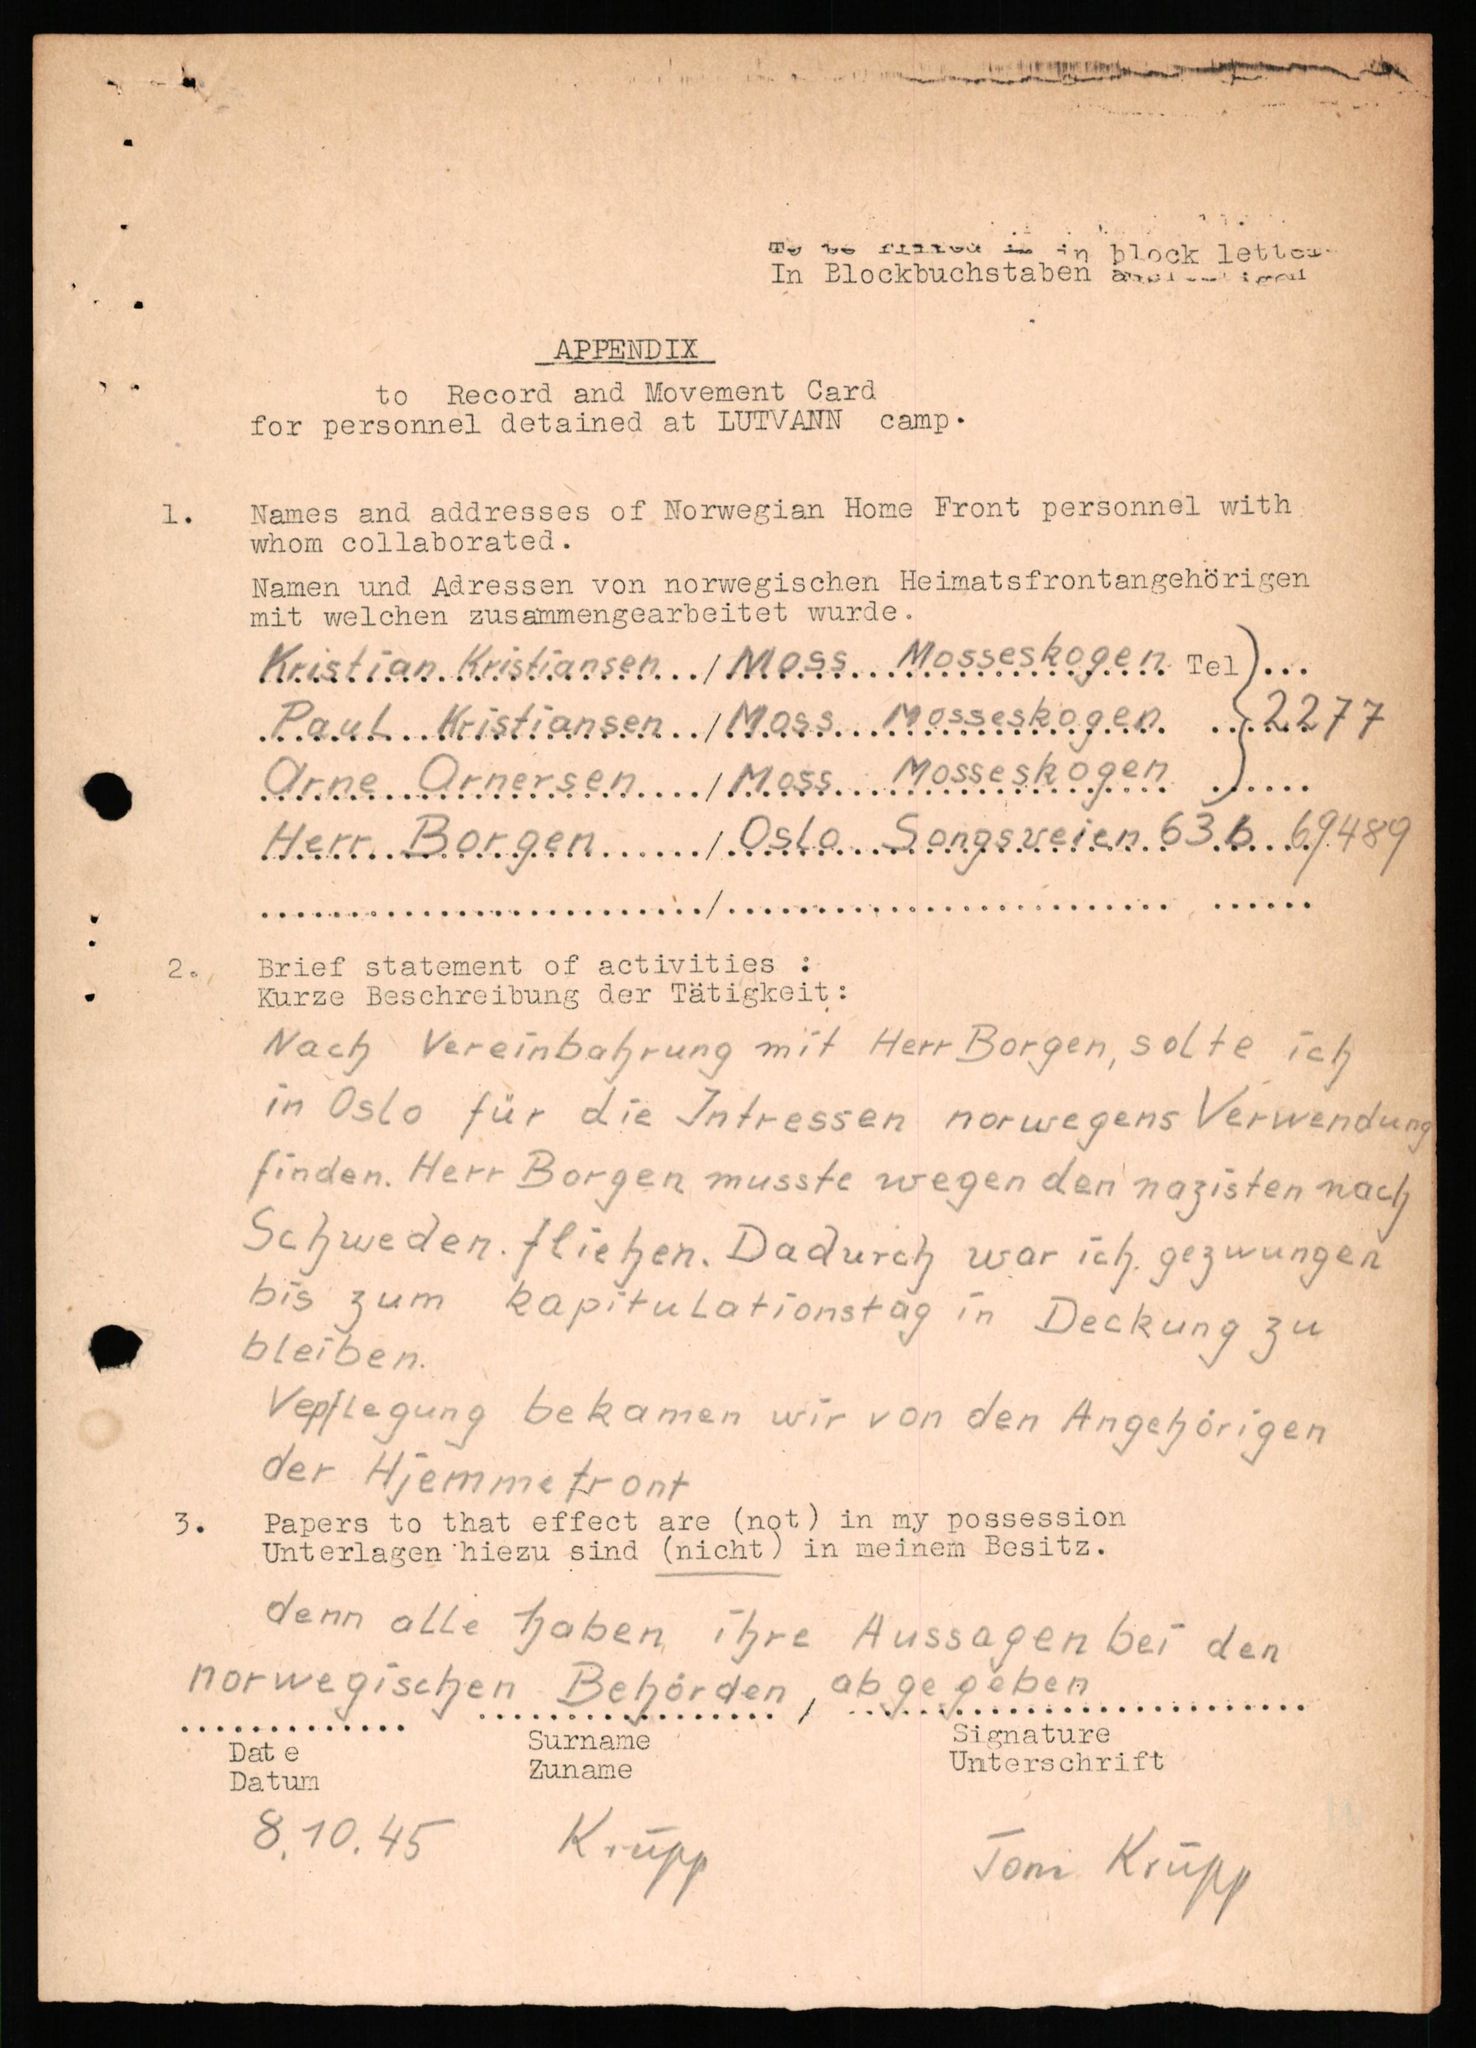 To be filled in in block letters
In Blockbuchstaben
APPENDIX
to Record and Movement Card
for personnel detained at LUTVANN camp.
1. Names and addresses of Norwegian Home Front personnel with
whom collaborated.
Namen und Adressen von norwegischen Heimatsfrontangehörigen
mit welchen zusammengearbeitet wurde.
Kristian Kristiansen / Moss Mosseskogen Tel
Paul Kristiansen / Moss Mosseskogen } 2277
Arne Arnersen / Moss Mosseskogen
Herr Borgen / Oslo Songsveien 63 b 69489
/
2. Brief statement of activities :
Kurze Beschreibung der Tätigkeit:
Nach Vereinbahrung mit Herr Borgen, solte ich
in Oslo für die Intressen norwegens Verwendung
finden. Herr Borgen musste wegen den nazisten nach
Schweden. fliehen. Dadurch war ich gezwungen
bis zum kapitulationstag in Deckung zu
bleiben.
Vepflegung bekamen wir von den Angehörigen
der Hjemmefront
3. Papers to that effect are (not) in my possession
Unterlagen hiezu sind (nicht) in meinem Besitz.
denn alle haben ihre Aussagen bei den
norwegischen Behörden, abgegeben
Date Surname Signature
Datum Zuname Unterschrift
8.10.45 Krüpp Toni Krüpp